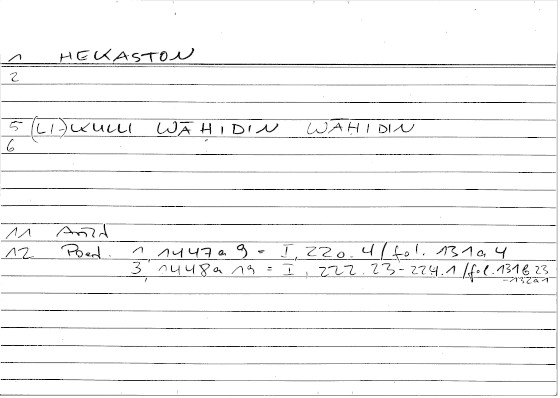 1 HEKASTON
2
5 (LI-)KULLI WĀḤIDIN WĀḤIDIN
6
11 Arist
12 Poet. 1, 1447a9 = I, 220.4/fol. 131a4
3, 1448a19 = I, 222.23-224.1/fol. 131b23
-132a1